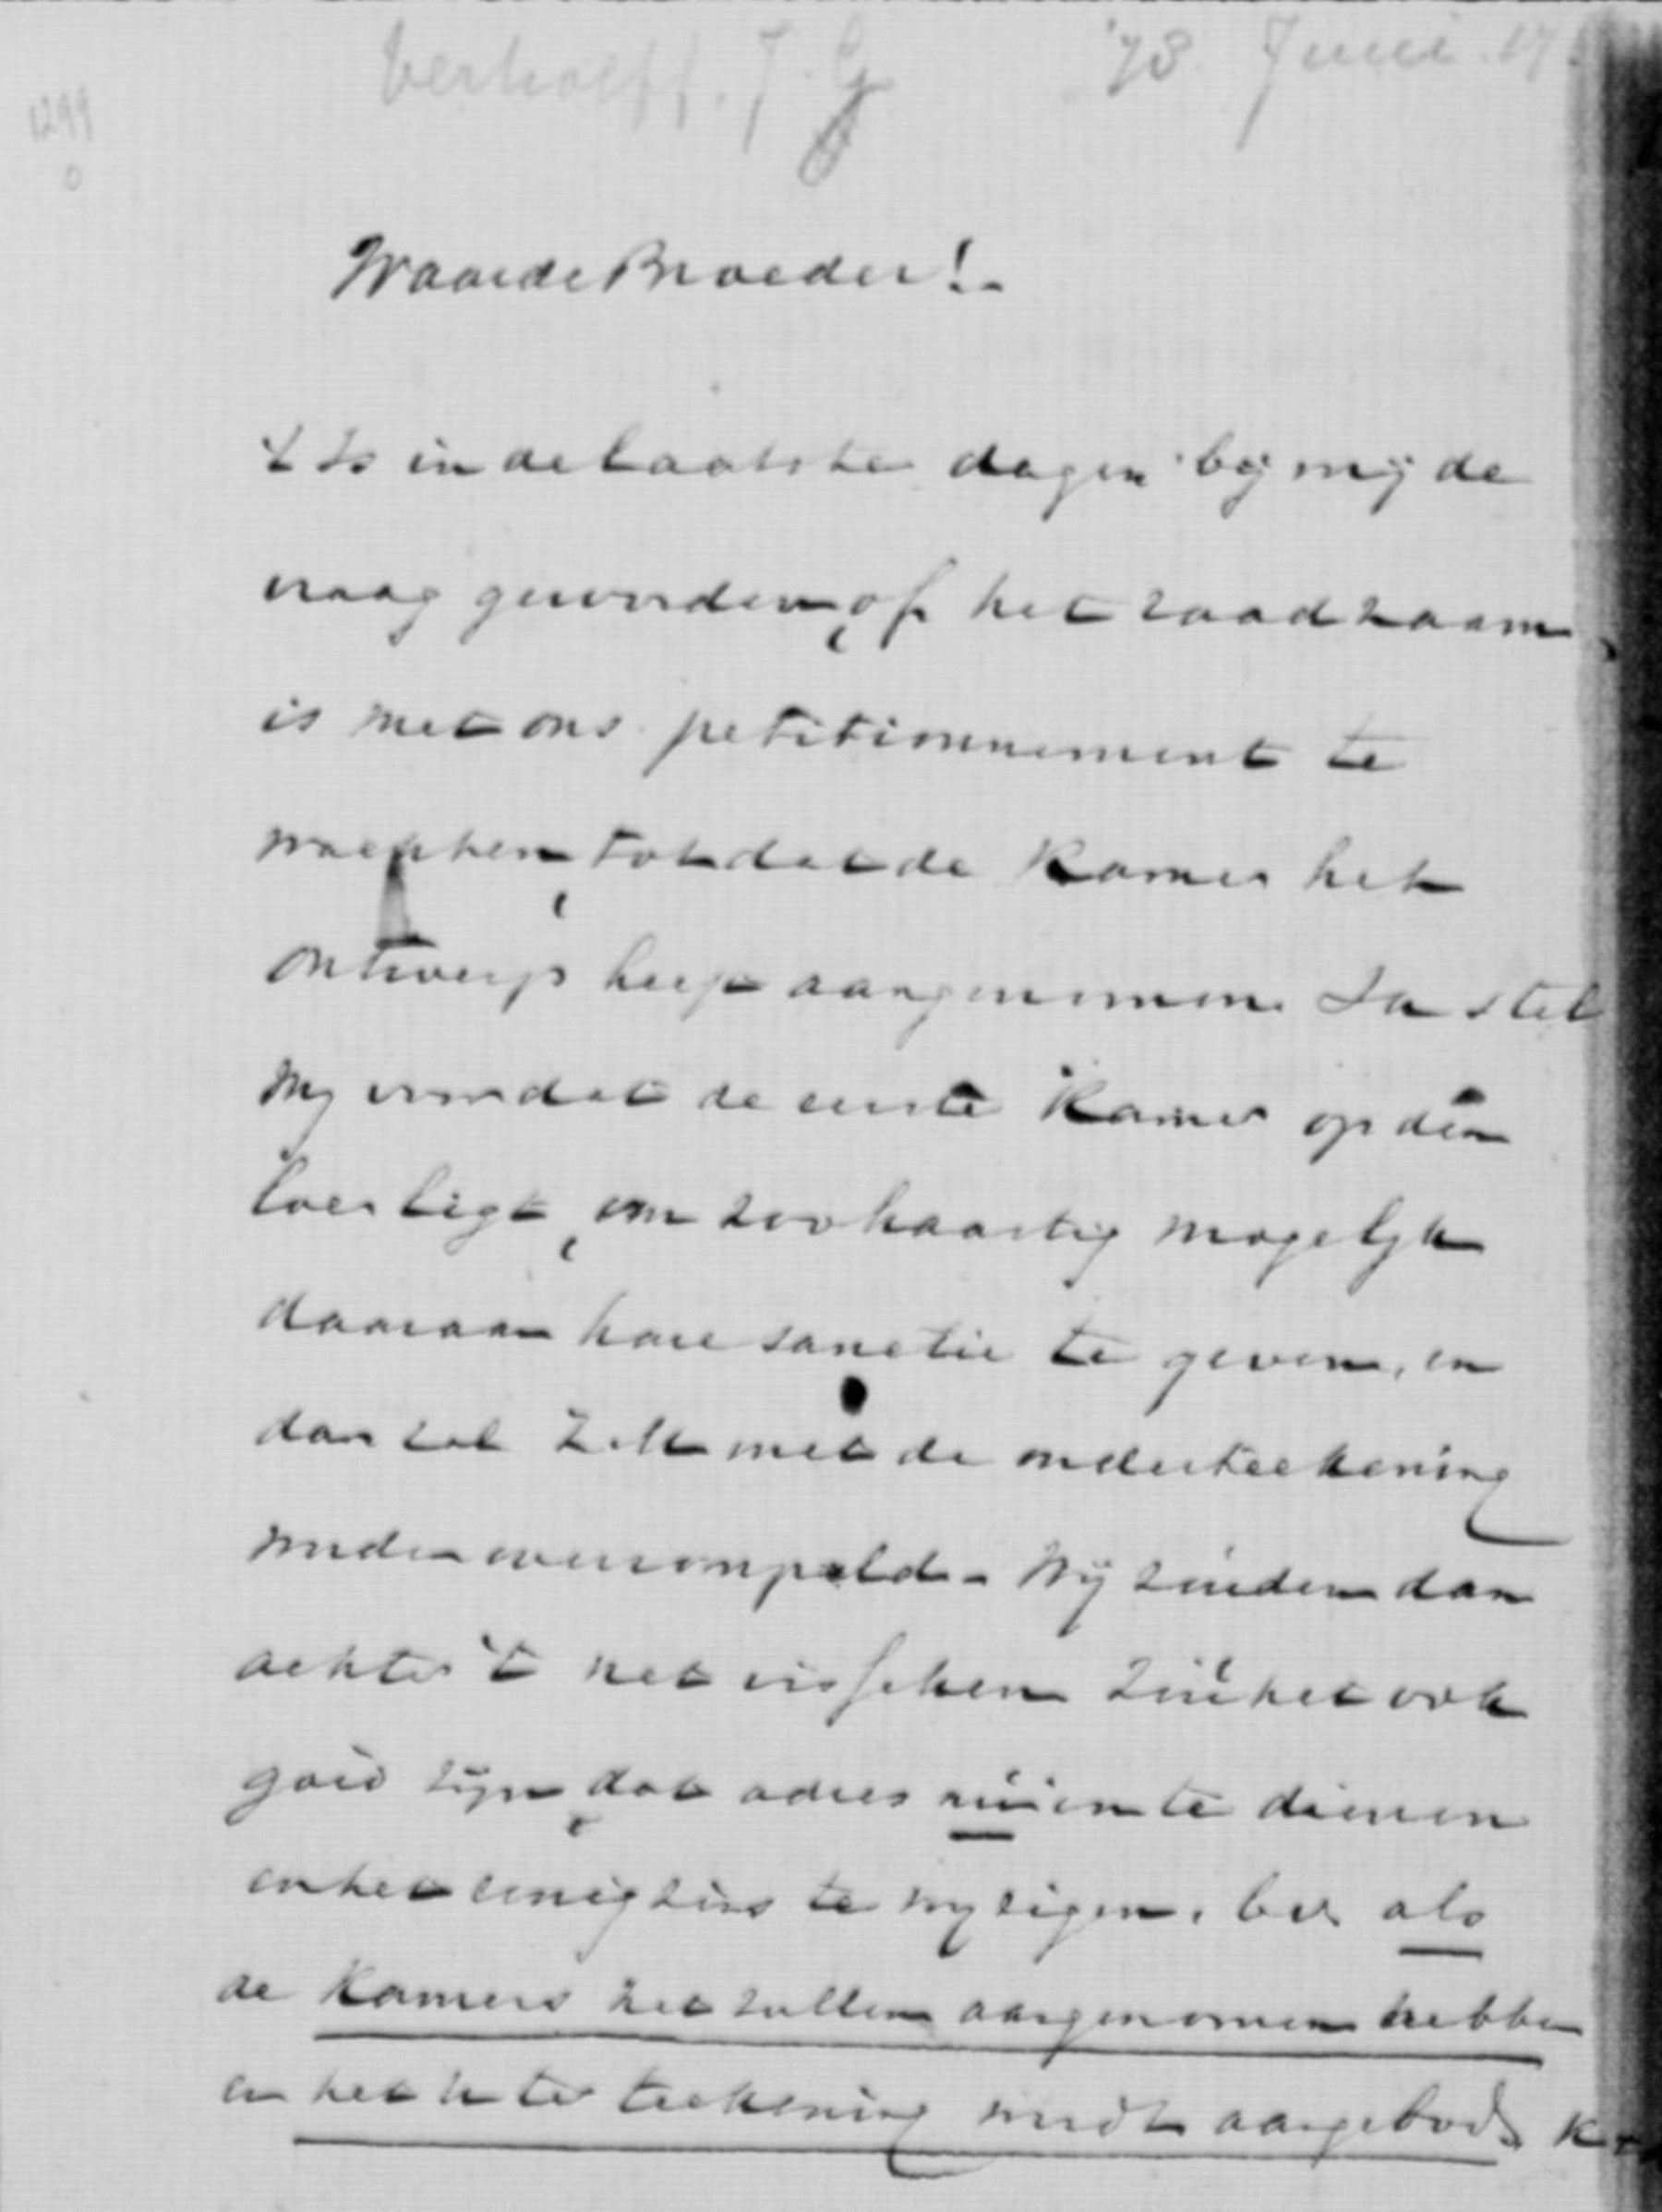 Verhoeff. J. G '78. Juni. 17
1299
0
Waarde Broeder!.
't Is in de laatste dagen bij mij de
vraag geworden, of het raadzaam
is met ons petitionnement te
wachten, totdat de Kamer het
ontwerp heeft aangenomen. Ik stel
mij voor dat de eerste Kamer op den
loer ligt, om zoo haastig mogelijk
daaraan hare sanctie te geven, en
dan zal Z.M. met de onderteekening
worden overrompeld. Wij zouden dan
achter 't net visschen Zou het ook
goed zijn, dat adres nu in te dienen
en het eenigzins te wijzigen. bv. als
de Kamers het zullen aangenomen hebben
en het U ter teekening wordt aangeboden